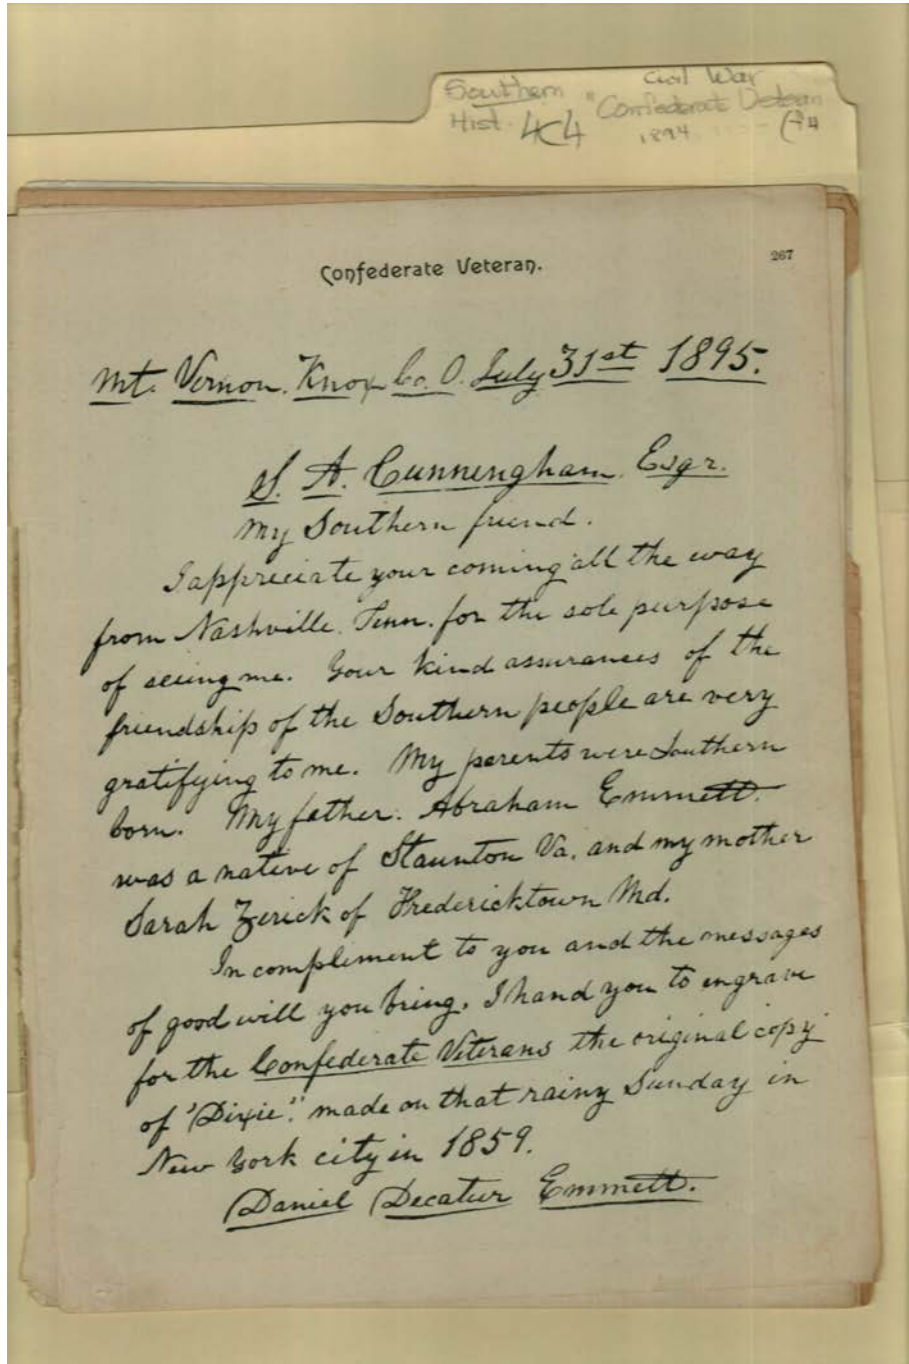 Southern
Hist. 4C4
Civil War
"Confederate Veteran
1894
Confederate Veteran.
267
Mt. Vernon. Knox Co. O. July 31st 1895.
S. A. Cunningham. Esqr.
My Southern friend.
I appreciate your coming all the way
from Nashville. Tenn. for the sole purpose
of seeing me. Your kind assurances of the
friendship of the Southern people are very
gratifying to me. My parents were Southern
born. My father. Abraham Emmett.
was a native of Staunton Va. and my mother
Sarah Zerick of Fredericktown Md.
In complement to you and the messages
of good will you bring, I hand you to engrave
for the Confederate Veterans the original copy
of "Dixie." made on that rainy Sunday in
New York city in 1859.
Daniel Decatur Emmett.